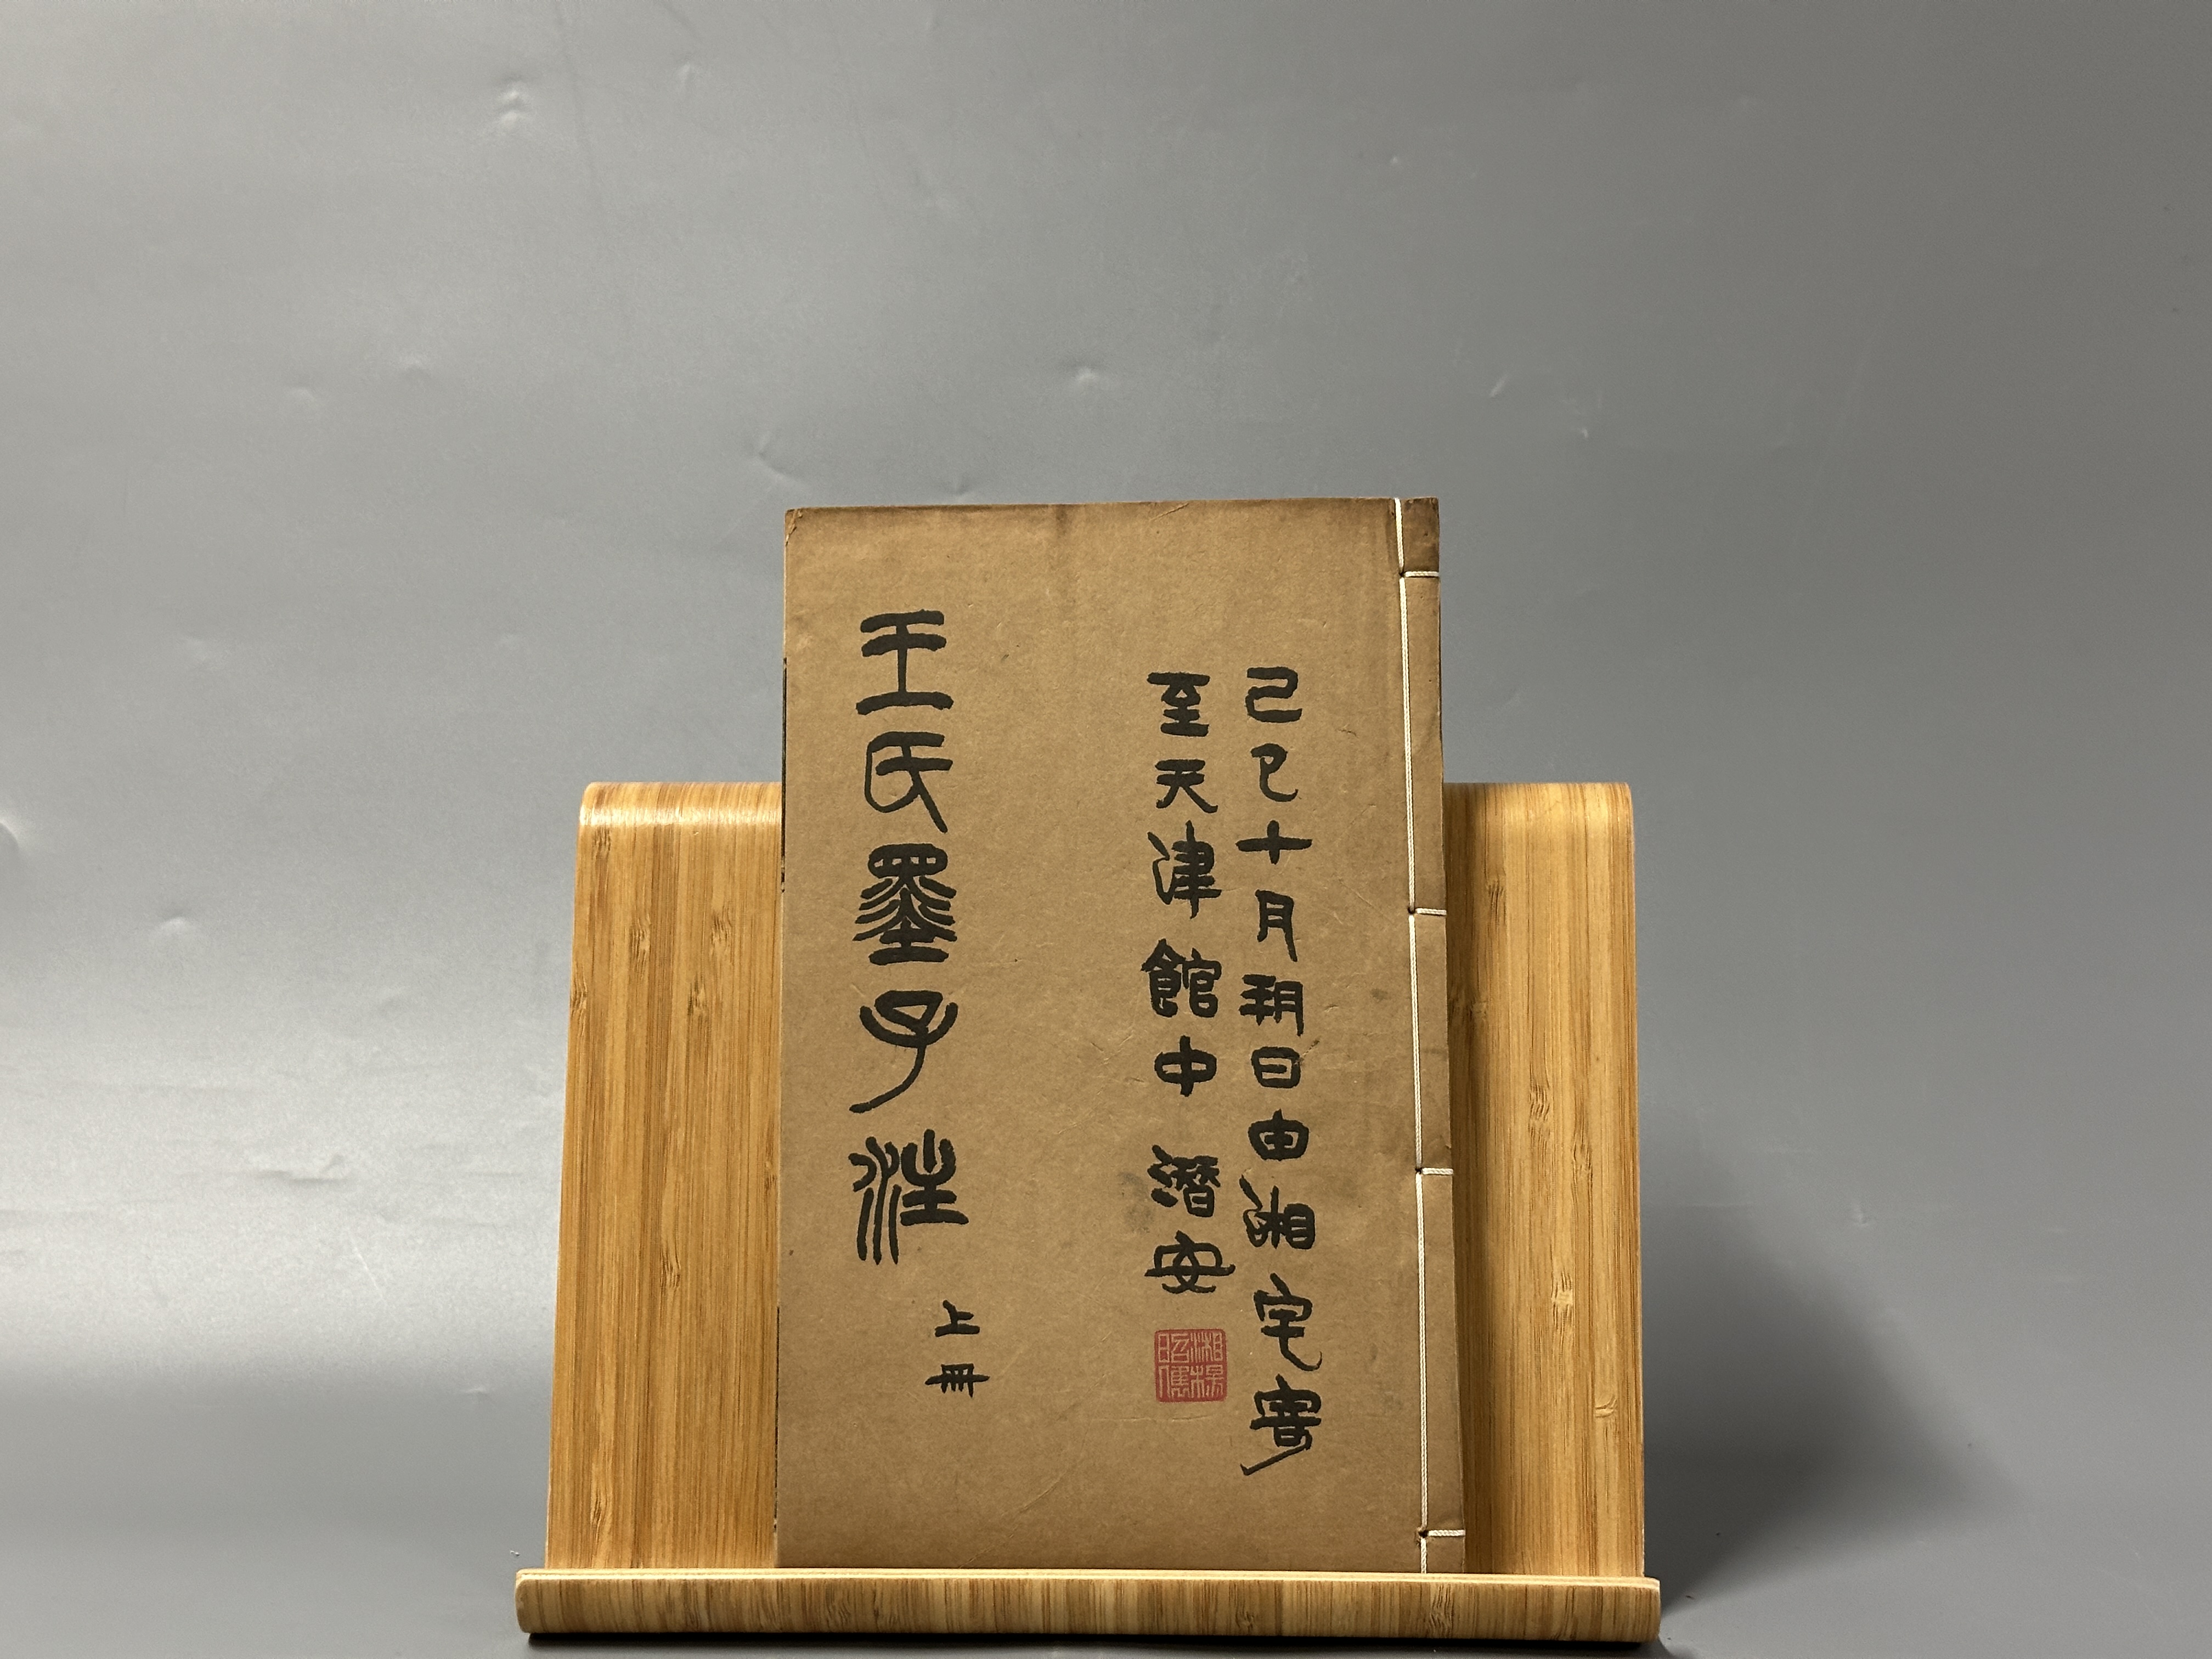 己巳十月朔日由湘宅寄
至天津館中 潛安
湘楊
昭儁
王氏墨子注
上冊